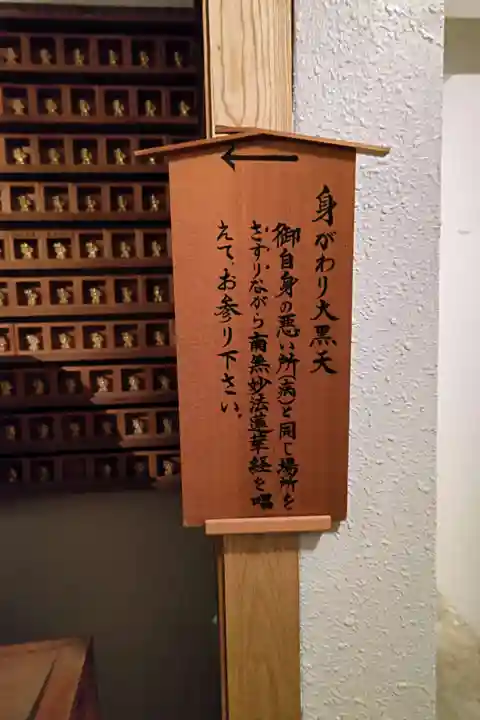 身がわり大黒天
御自身の悪い所(病)と同じ場所を
さすりながら南無妙法蓮華経を唱
えて、お参り下さい。